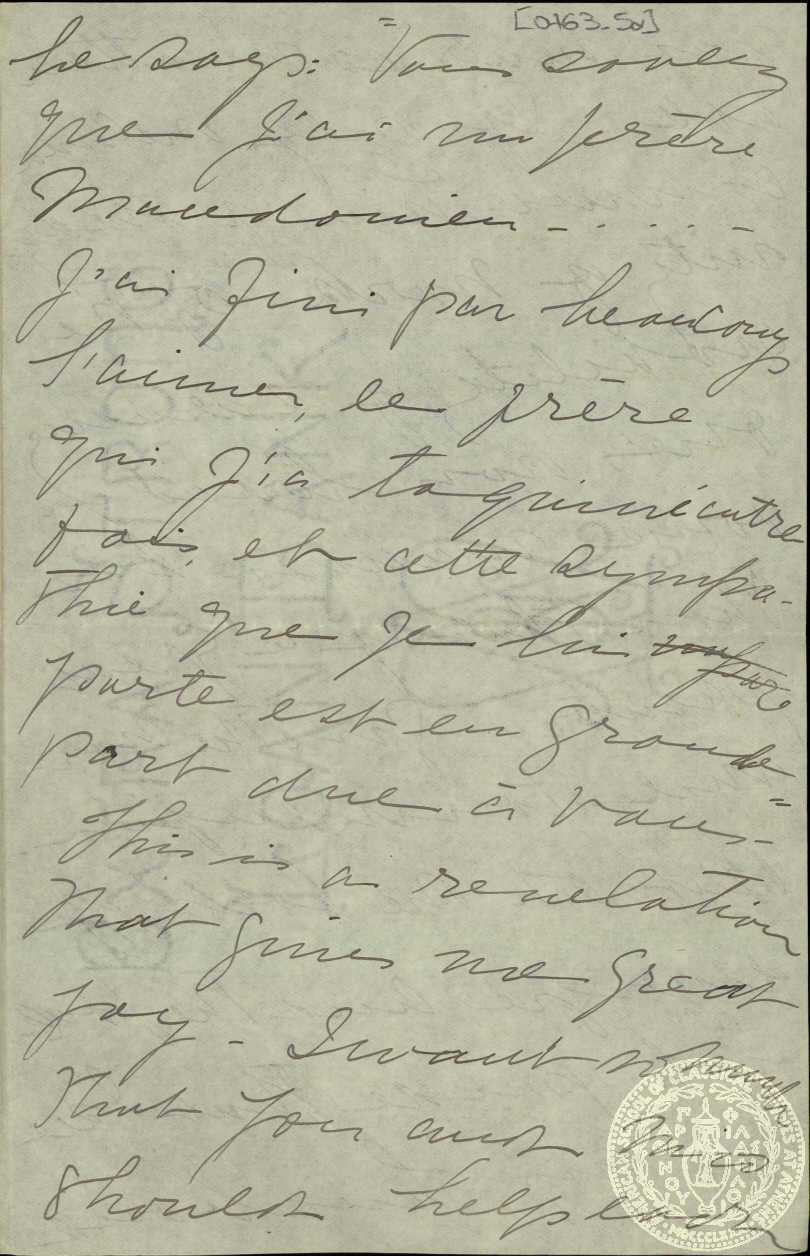 [0463-5d]
he says: "Vous savez
que j'ai un frère
Macedonien - . . . -
j'ai fini par beaucoup
l'aimer, le frère
qui j'ai taquiné autre
fois, et cette sympa-
thie que je lui
porte est en grande
part due à vous -"
This is a revelation
that gives me great
joy - I want so
that you and
should help